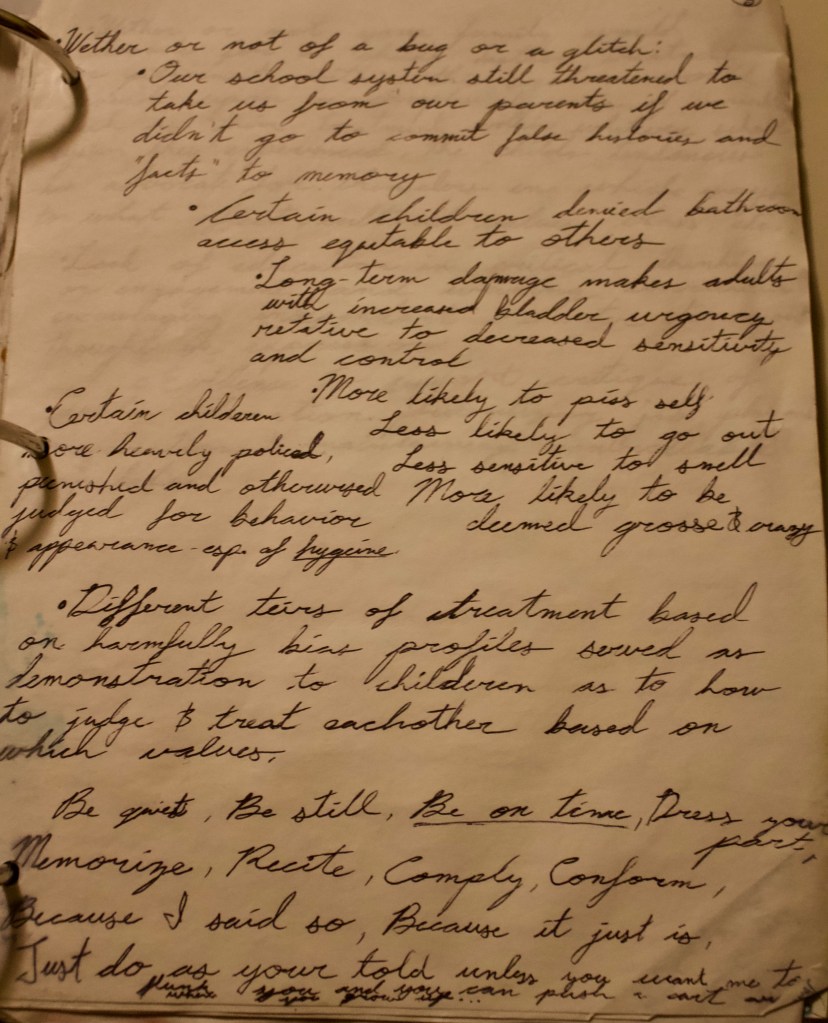 • Wether or not of a bug or a glitch:
• Our school system still threatened to
take us from our parents if we
didn't go to commit false histories and
"facts" to memory
• Certain children denied bathroom
access equitable to others
• Long-term damage makes adults
with increased bladder urgency
relative to decreased sensitivity
and control
• More likely to piss self
Less likely to go out
Less sensitive to smell
More likely to be
deemed grosse & crazy
• Certain childeren
more heavily policed,
punished and otherwised
judged for behavior
& appearance - esp. of hygeine
• Different teirs of treatment based
on harmfully bias profiles served as
demonstration to childeren as to how
to judge & treat eachother based on
which values.
Be quiet, Be still, Be on time, Dress your
part,
Memorize, Recite, Comply, Conform,
Because I said so, Because it just is,
Just do as your told unless you want me to
you and you can push a cart